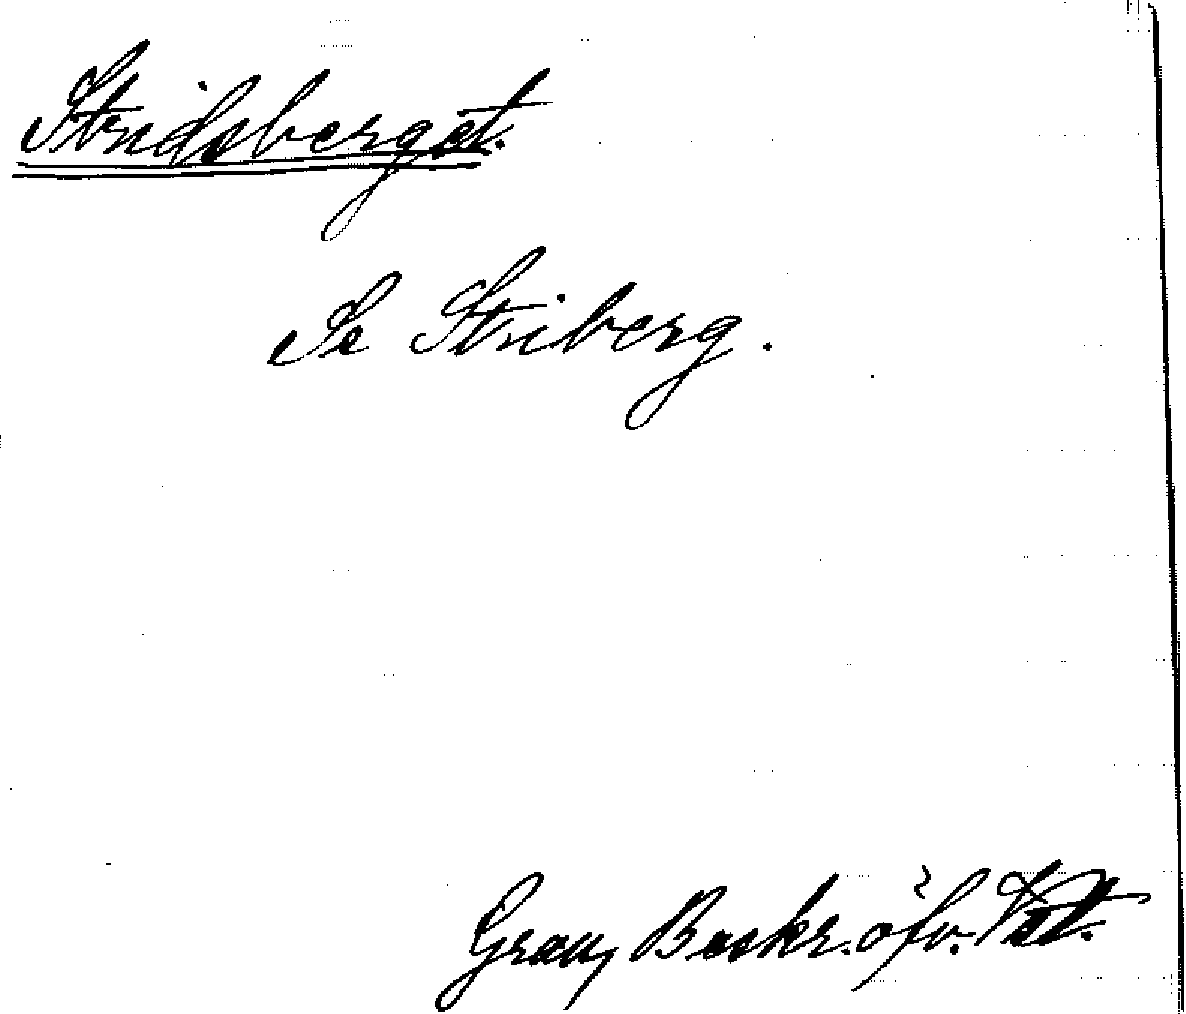 Stridsberget.
Se Striberg.
Grau, Beskr. öfv. Vstl.